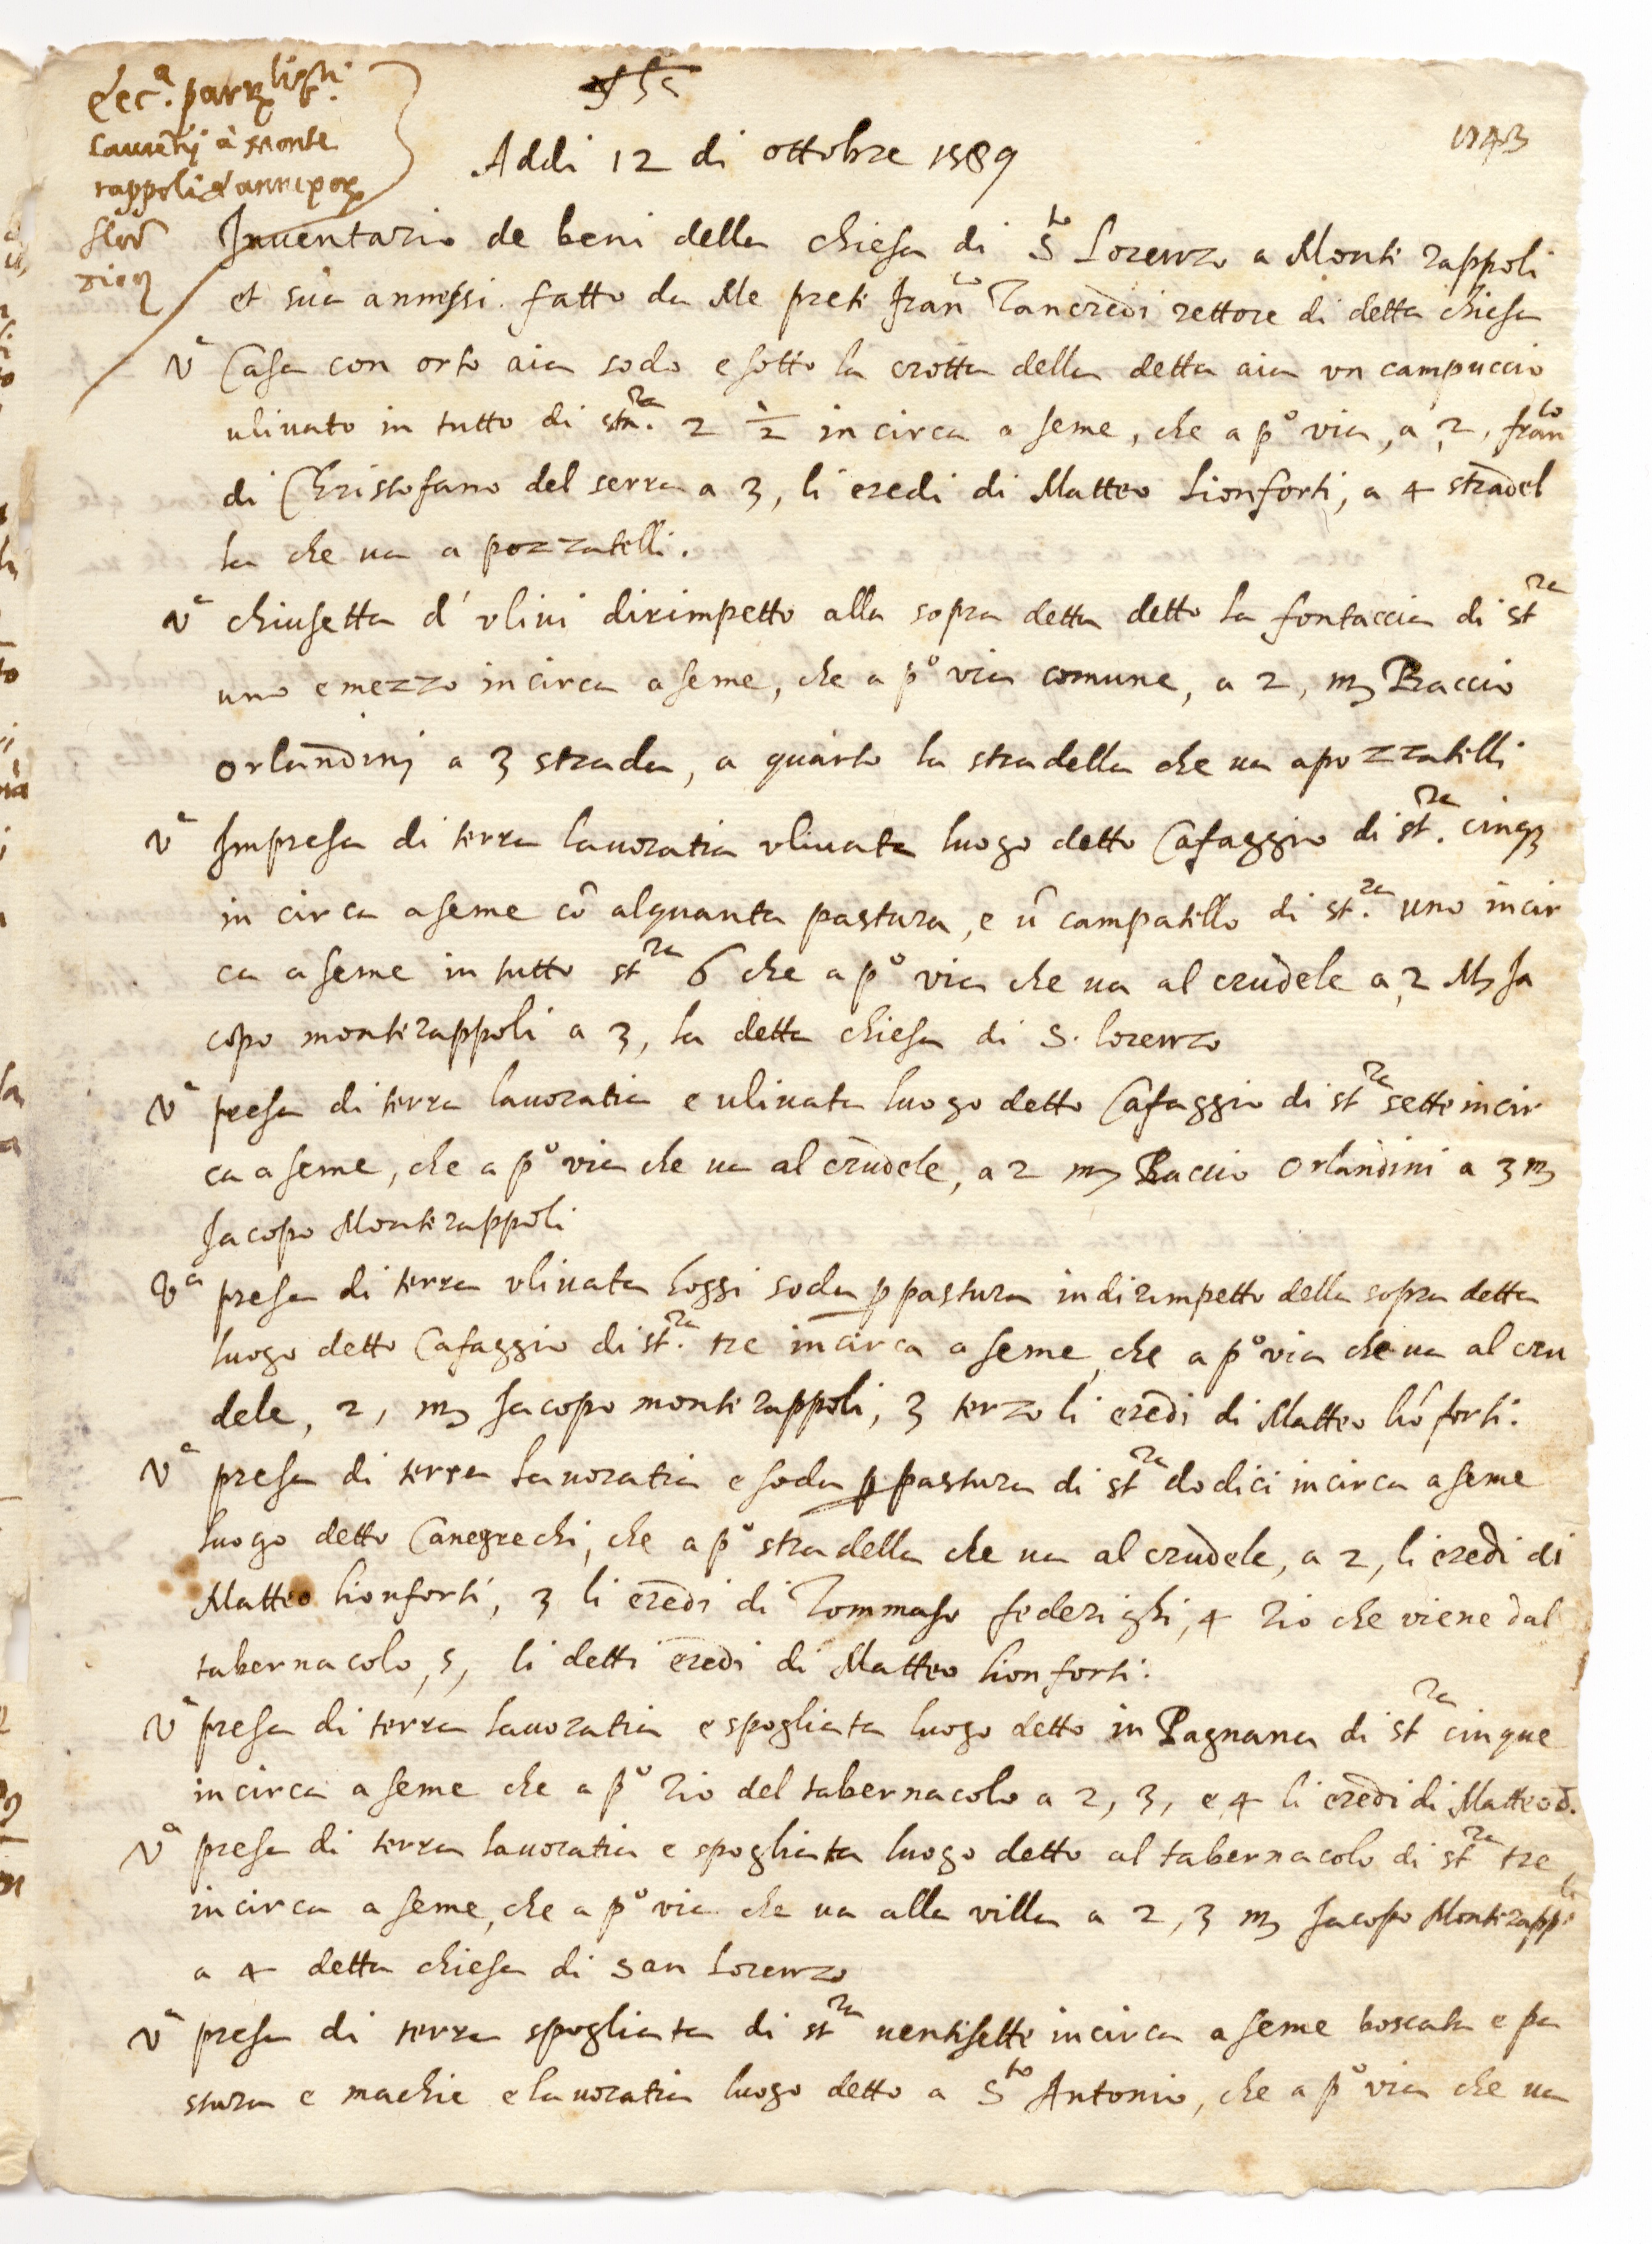 Laurẽtij à Monte
rappoli & annexor̃
Addi 12 di ottobre 1589
Inuentario de beni della chiesa di S.to Lorenzo a Monte rappoli
et sua annessi fatto da Me prete Fran.co Tancredi rettore di detta chiesa
Vª Casa con orto aia sodo e sotto la crotta della detta aia vn campuccio
vliuato in tutto di sta.ra 2 ½ in circa a seme, che a pº via, a 2, fran.co
di Christofano del serra a 3, li eredi di Matteo Lionforti, a 4 stradel
la che ua a pozzatelli.
Vª chiusetta d'vliui dirimpetto alla sopra detta detto la fontaccia di st.ra
uno e mezzo incirca a seme, che a pº via comune, a 2, m Baccio
orlandinj a 3 strada, a quarto la stradella che ua apozzatelli
Vª Impresa di terra lauoratia vliuata luogo detto Cafaggio di st.ra cinq3
in circa aseme cõ alquanta pastura, e ũ campatello di st.ra uno incir
ca a seme in tutto st.ra 6 che a pº via che ua al crudele a 2 M Ja
copo monterappoli a 3, la detta chiesa di S. lorenzo
Vª presa di terra lauoratia e vliuata luogo detto Cafaggio di st.ra sette incir
ca a seme, che a pº via che ua al crudele, a 2 m Baccio Orlandini a 3 m
Jacopo Monterappoli
Vª presa di terra vliuata hoggi soda p pastura indirimpetto della sopra detta
luogo detto Cafaggio di st.ra tre incirca a seme, che a pº via che ua al cru
dele, 2, m Jacopo monterappoli, 3 terzo li eredi di Matteo liõforti.
Vª presa di terra lauoratia e soda p pastura di st.ra dodici incirca a seme
luogo detto Canegrechi, che a pº stradella che ua al crudele, a 2, li eredi di
Matteo lionforti, 3 li eredi di Tommaso federighi, 4 rio che viene dal
tabernacolo, 5, li detti eredi di Matteo lionforti.
Vª presa di terra lauoratia e spogliata luogo detto in Pagnana di st.ra cinque
incirca a seme che a pº rio del tabernacolo a 2, 3, e 4 li eredi di Matteo d.
Vª presa di terra lauoratia e spogliata luogo detto al tabernacolo di st.ra tre
incirca a seme, che a pº via che ua alla villa a 2, 3 m Jacopo Monterapp.li
a 4 detta chiesa di san Lorenzo
Vª presa di terra spogliata di st.ra uentisette incirca a seme boscata e pa
stura e machie e lauoratia luogo detto a S.to Antonio, che a pº via che ua